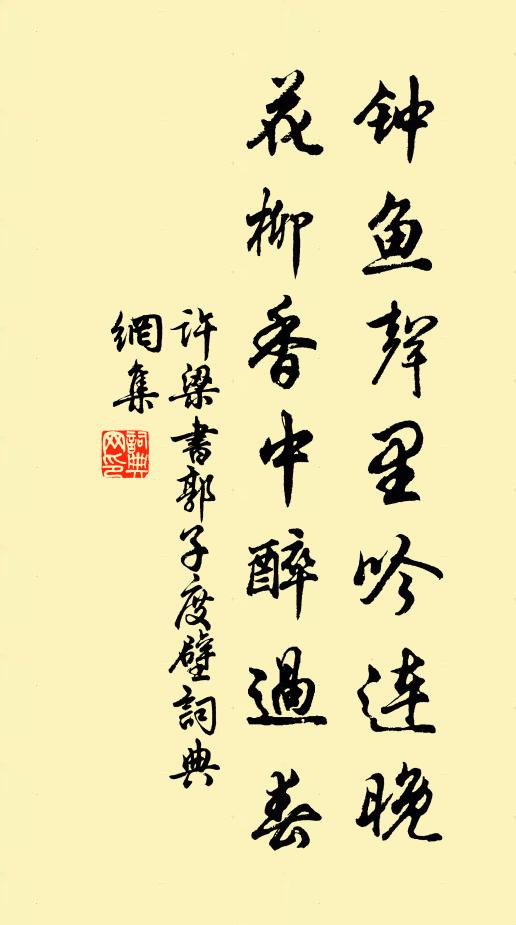 钟鱼聲里吟連晚
花柳香中醉過春
許梁書郭子度壁詞典
網集
詞典网印